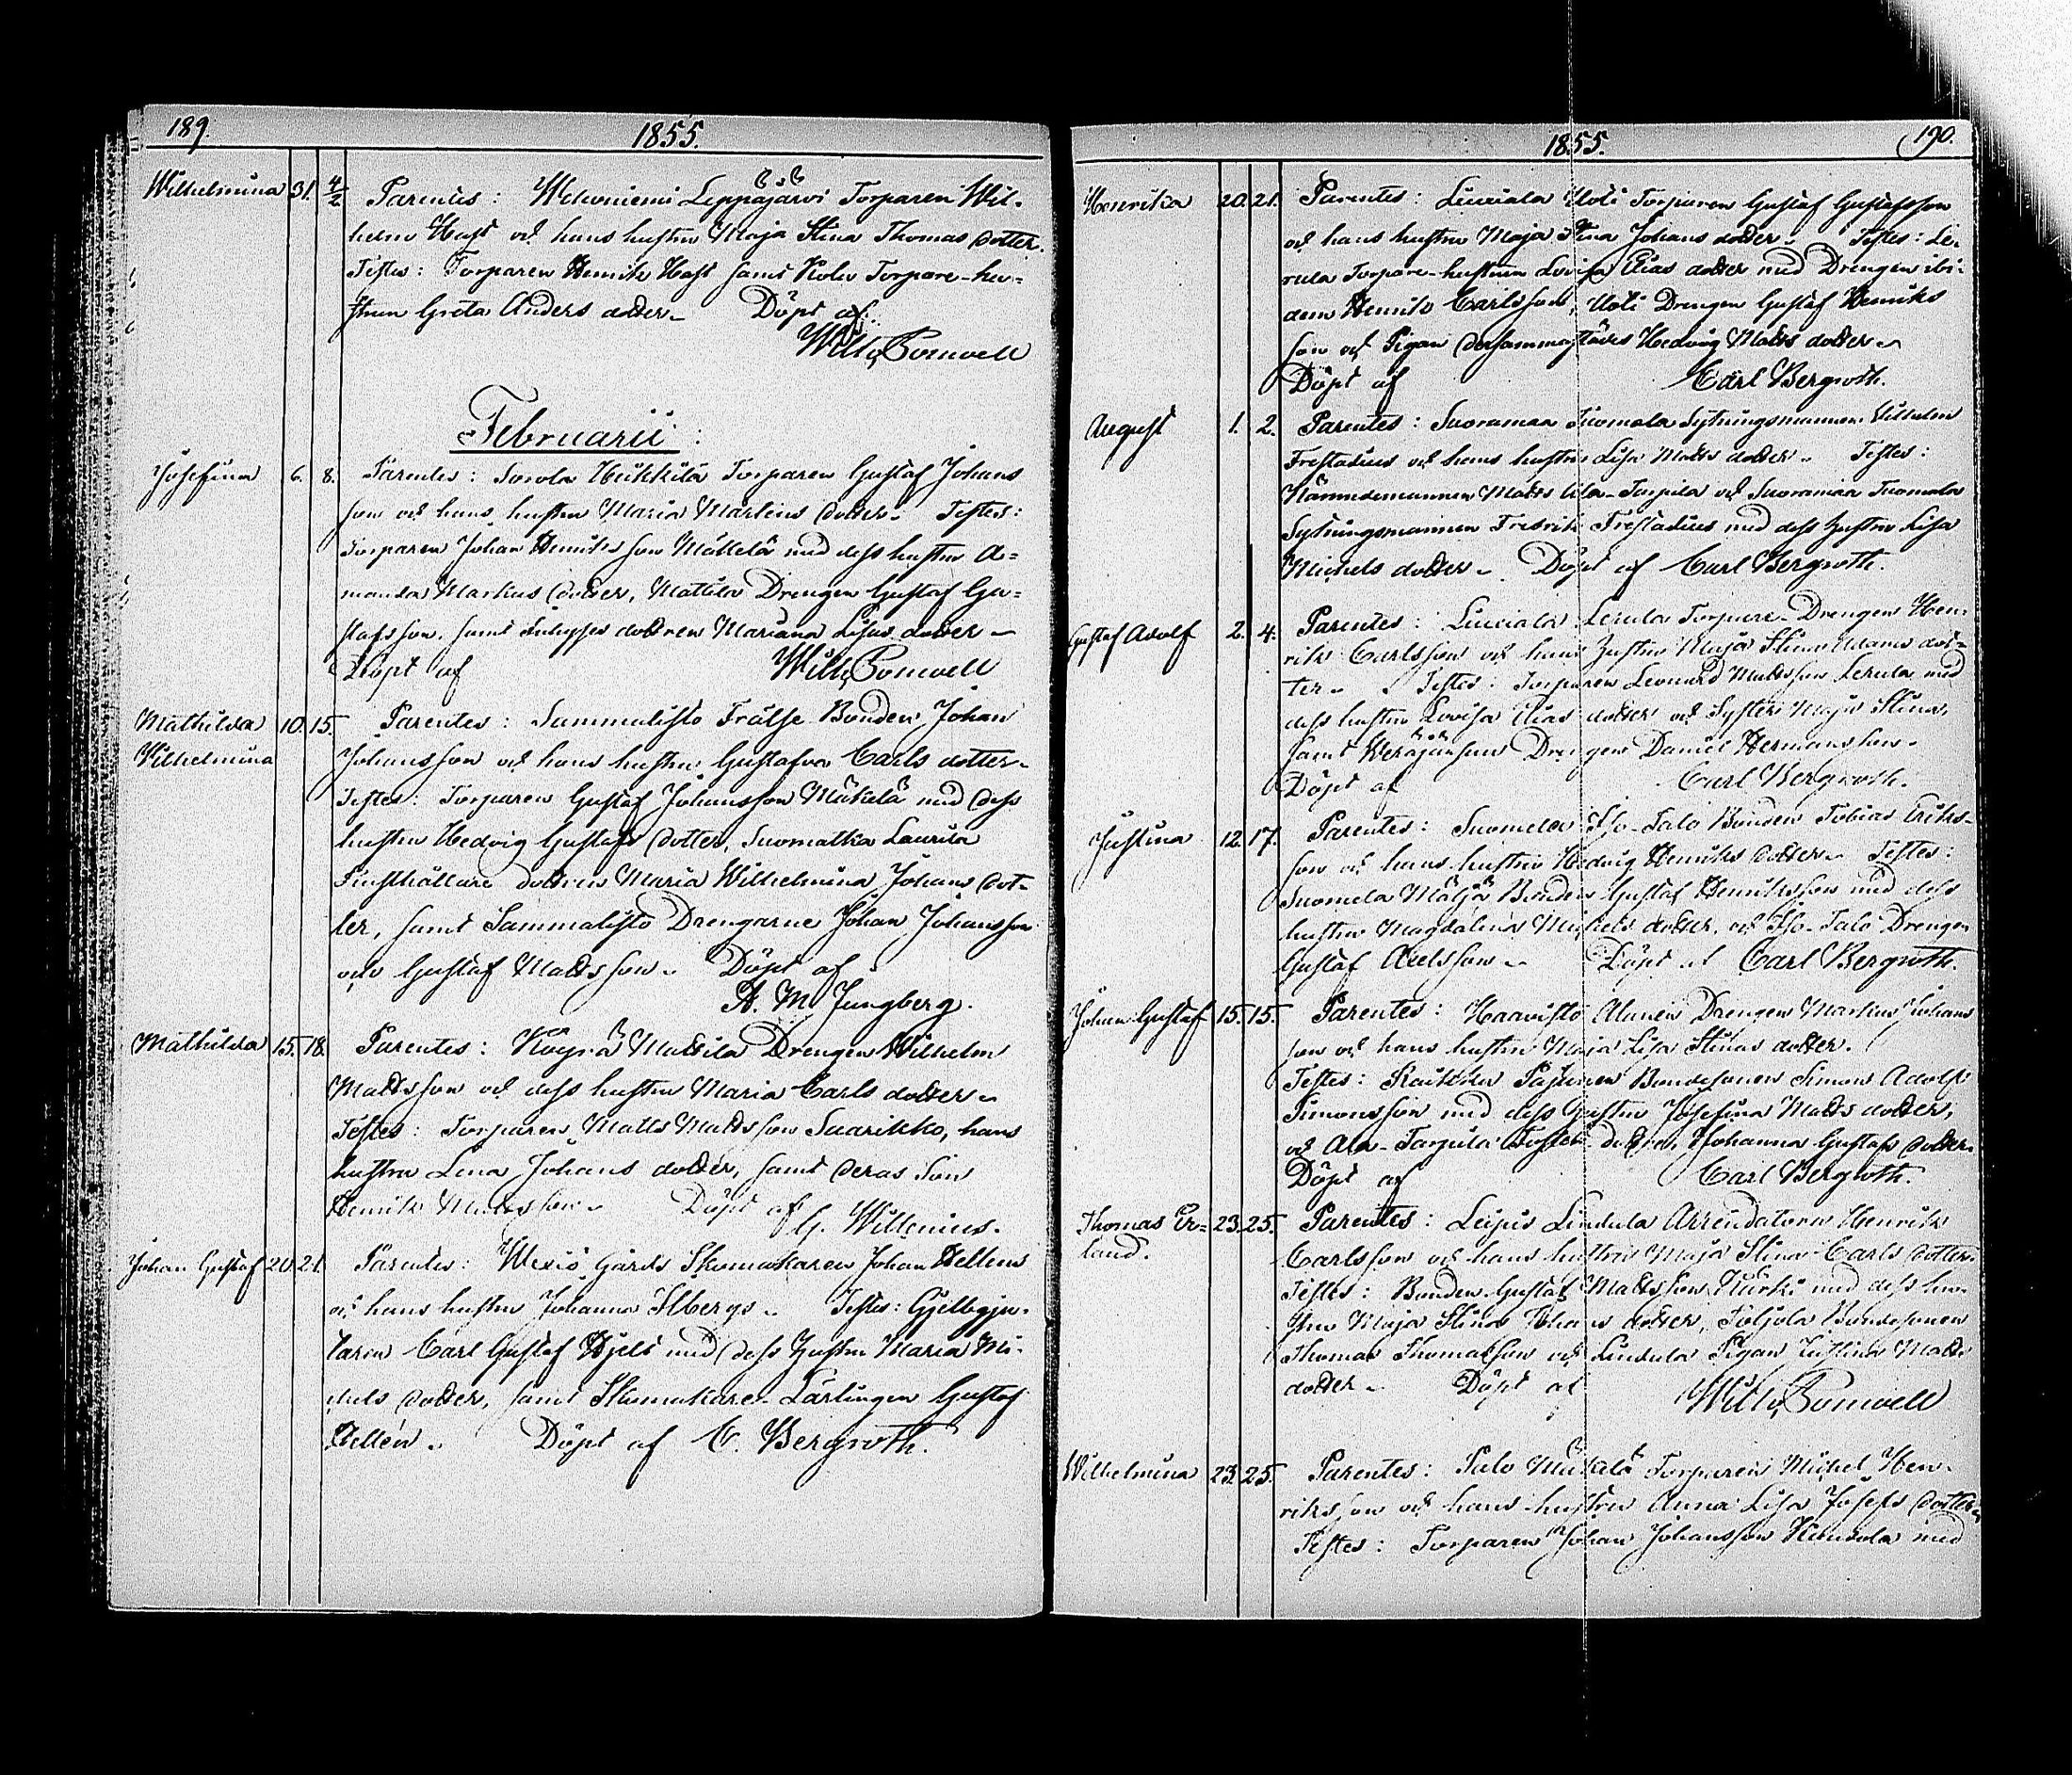 189.
1855.
Wilhelmina 31. 4/2 Parentes: Leppäjärvi Torparen Wil-
helm Hast och hans hustru Maja Stina Thomas dotter.
Testes: Torparen Henrik Hast samt Torpare-hu-
strun Greta Anders dotter. Döpt af
Februarii
Josefina 6. 8. Parentes: Sorola Heikkilä Torparen Gustaf Johans
son och hans hustru Maria Mårtens dotter. Testes:
Torparen Johan Henriks son Mäkelä med dess hustru A=
manda Markus dotter, Mattila Drengen Gustaf Gu=
stafsson, samt dottren Mariana dotter
Döpt af
Mathilda 10. 15. Parentes: Sammalisto Frälse Bonden Johan
Wilhelmina Johansson och hans hustru Gustafva Carls dotter.
Testes: Torparen Gustaf Johansson Mäkelä med dess
hustru Hedvig Gustafs dotter, Suomatka Laurila
Rusthållare dottren Maria Wilhelmina Johans dot-
ter, samt Sammalisto Drengarne Johan Johansson
och Gustaf Mattsson. Döpt af
A. M. Jungberg.
Mathilda 15. 18. Parentes: Köyrä Mattila Drengen Wilhelm
Mattsson och dess hustru Maria Carls dotter.
Testes: Torparen Matts Mattsson Suarikko, hans
hustru Lena Johans dotter, samt deras Son
Henrik Mattsson. Döpt af
G. Willenius.
Johan Gustaf 20. 21. Parentes: gårds Skomakaren Johan Hellens
och hans hustru Johanna Ilbergs. Testes: Gjelbgju-
taren Carl Gustaf Hjelt med dess Hustru Maria Mi-
chels dotter, samt Skomakare-Lärlingen Gustaf
Hellén. Döpt af C. Bergroth.
1855.
190.
Henrika 20. 21. Parentes: Torparen Gustaf Gustafsson
och hans hustru Maja Stina Johans dotter. Testes: Le-
rula Torpare-hustrun Lovisa Elias dotter med Drengen ibi-
dem Henrik Carlsson, Uoti Drengen Gustaf Henriks
son och Pigan dersammastädes Hedvig Matts dotter.
Döpt af Carl Bergroth.
August 1. 2. Parentes: Suoramaa Tuomola Sytningsmannen Wilhelm
Frestadius och hans hustru Lisa Matts dotter. Testes:
Nämndemannen Matts Ala-Tarpila och Suoramaa Tuomola
Sytningsmannen Fredrik Frestadius med dess hustru Lisa
Michels dotter. Döpt af Carl Bergroth.
Gustaf Adolf 2. 4. Parentes: Lerula Torpare-Drengen Hen-
rik Carlsson och hans Hustru Maja Stina Adams dot-
ter. Testes: Torparen Leonard Mattsson Lerula med
dess hustru Lovisa Elias dotter och Syster Maja Stina,
samt Drengen Daniel Hermansson.
Döpt af Carl Bergroth.
Justina 12. 17. Parentes: Suomela Iso-Talo Bonden Tobias Eriks-
son och hans hustru Hedvig Henriks dotter. Testes:
Suomela Mäljä Bonden Gustaf Henriksson med dess
hustru Magdalena Michels dotter, och Iso-Talo Drengen
Gustaf Axelsson. Döpt af Carl Bergroth.
Johan Gustaf 15. 15. Parentes: Haavisto Alanen Drengen Markus Johans
son och hans hustru Maja Lisa Stinas dotter.
Testes: Pajunen Bondesonen Simon Adolf
Simonsson med dess Hustru Josefina Matts dotter,
och Ala-Tarpila dottren Johanna Gustafs dotter.
Döpt af Carl Bergroth.
Thomas Er= 23. 25. Parentes: Leipis Lindula Arrendatorn Henrik
land. Carlsson och hans hustru Maja Stina Carls dotter.
Testes: Bonden Gustaf Mattsson Kurki med dess hu-
stru Maja Stina Johans dotter, Bondesonen
Thomas Thomasson och Lindula Pigan Justina Matts
dotter. Döpt af
Wilhelmina 23. 25. Parentes: Salo Mäkelä Torparen Michel Hen-
riksson och hans hustru Anna Lisa Josefs dotter
Testes: Torparen Johan Johansson med